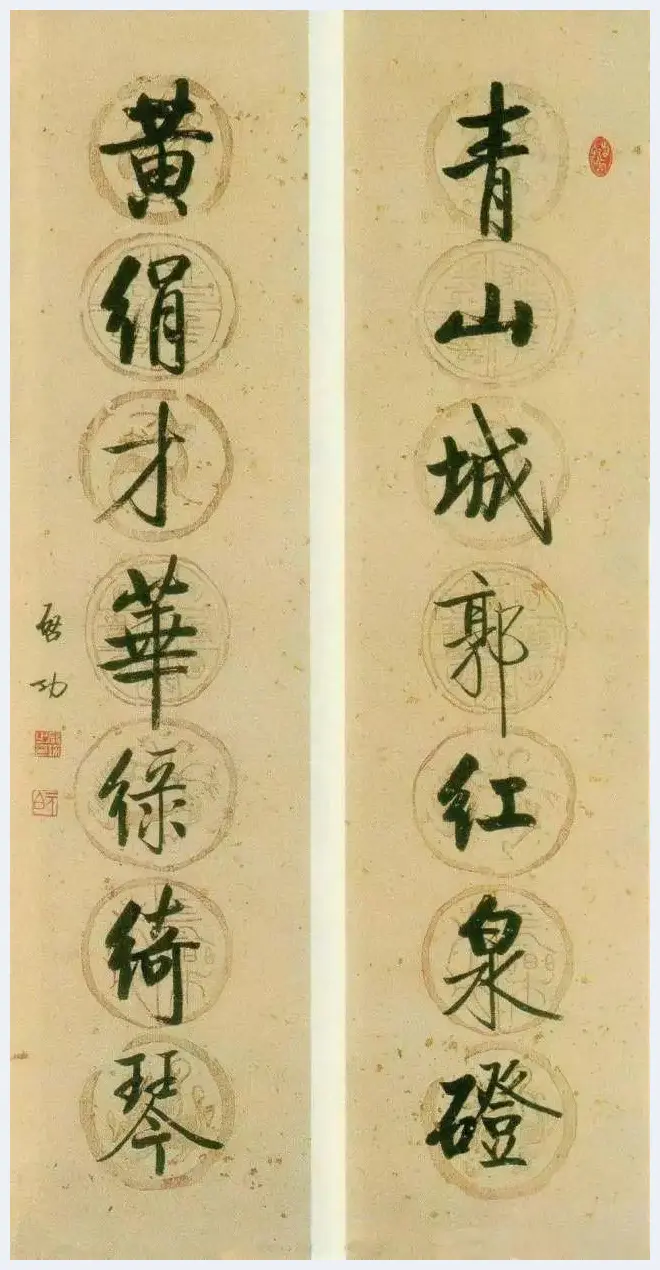 青山城郭红泉磴
黃绢才華綠绮琴
啟功